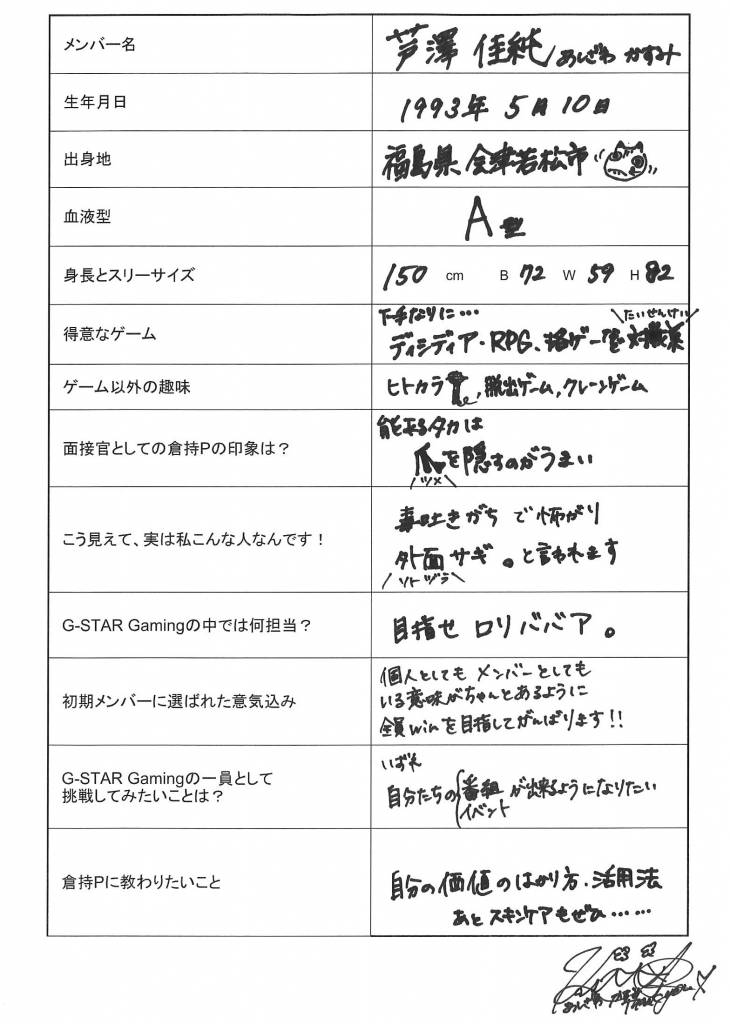 メンバー名
芦澤 佳純 あしざわ かすみ
生年月日
1993年 5月10日
出身地
福島県 会津若松市
血液型
A型
身長とスリーサイズ
150 cm B 72 W 59 H 82
得意なゲーム
下手なりに…
たいせんけい
ディシディア・RPG、格ゲー等対戦系
ゲーム以外の趣味
ヒトカラ,脱出ゲーム,クレーンゲーム
面接官としての倉持Pの印象は？
能あるタカは
爪を隠すのがうまい
ツメ
こう見えて、実は私こんな人なんです！
毒吐きがちで怖がり
外面サギ。と言われます
ソトヅラ
G-STAR Gamingの中では何担当？
目指せ ロリババア。
初期メンバーに選ばれた意気込み
個人としても メンバーとしても
いる意味がちゃんとあるように
全員winを目指してがんばります!!
G-STAR Gamingの一員として
挑戦してみたいことは？
いずれ
自分たちの番組が出来るようになりたい
イベント
倉持Pに教わりたいこと
自分の価値のはかり方、活用法
あと スキンケアもぜひ……
あしざわ